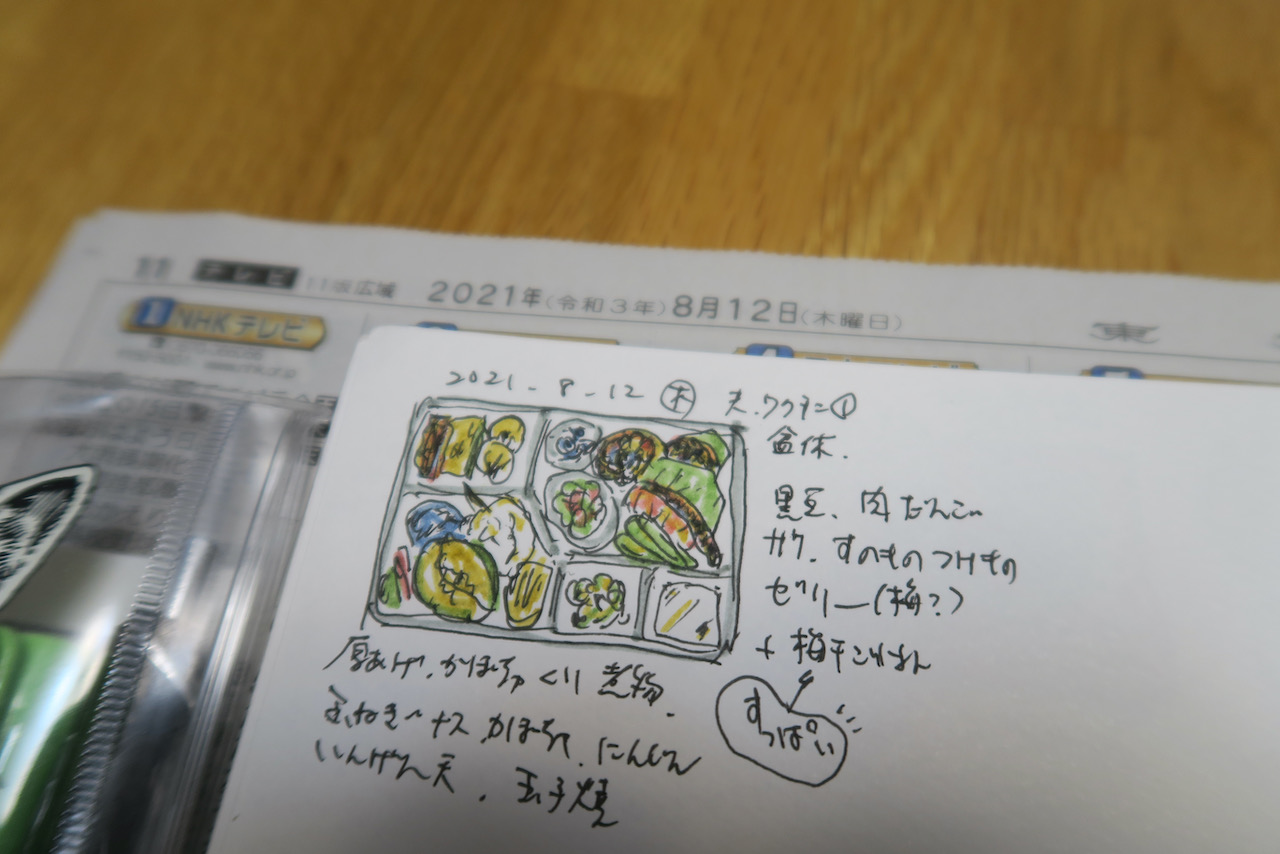 テレビ
11版広域
2021年(令和3年)8月12日(木曜日)
東
1 NHKテレビ
2021-8-12 木 夫.ワクチン①
盆休.
黒豆、肉だんご
サケ.すのもの つけもの
ゼリー(梅?)
+ 梅干ごはん
すっぱい
厚あげ.かぼちゃ くり 煮物.
玉ねぎ ナス かぼちゃ.にんじん
いんげん天. 玉子焼